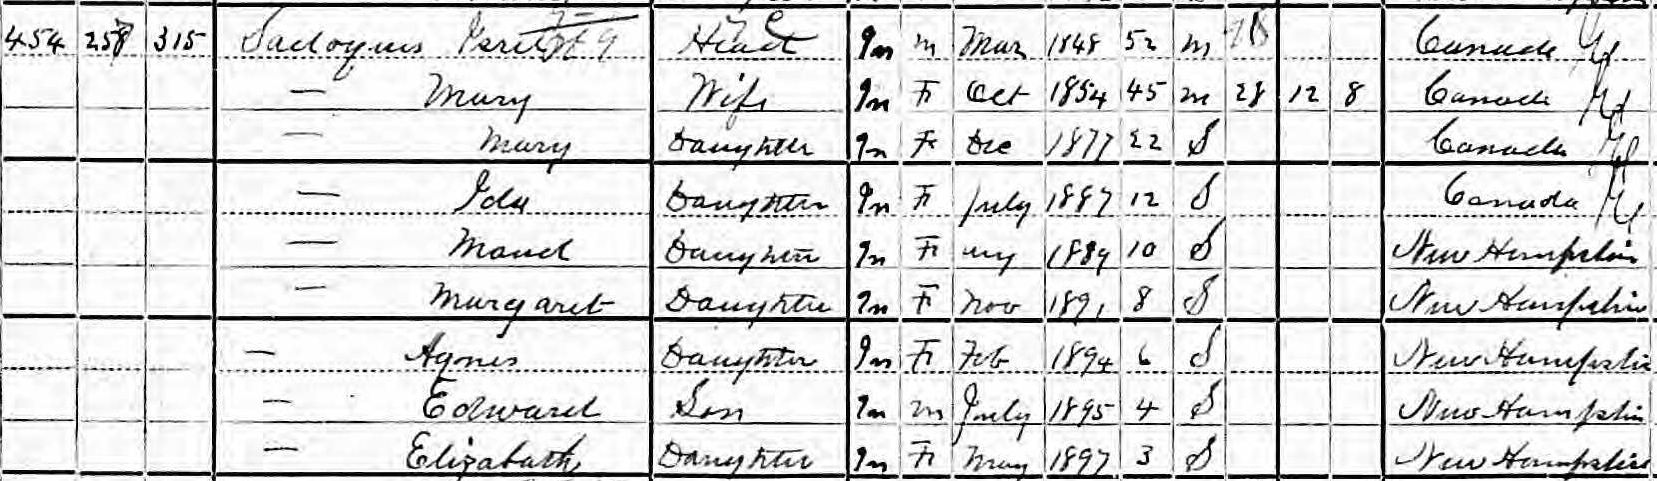 454 258 315 Sadoques Israel Head In m Mar 1848 52 m 28 Canada
— Mary Wife In F Oct 1854 45 m 28 12 8 Canada
— Mary Daughter In F Dec 1877 22 S Canada
— Ida Daughter In F July 1887 12 S Canada
— Maud Daughter In F 1889 10 S New Hampshire
— Margaret Daughter In F Nov 1891 8 S New Hampshire
— Agnes Daughter In F Feb 1894 6 S New Hampshire
— Edward Son In m July 1895 4 S New Hampshire
— Elizabeth Daughter In F May 1897 3 S New Hampshire